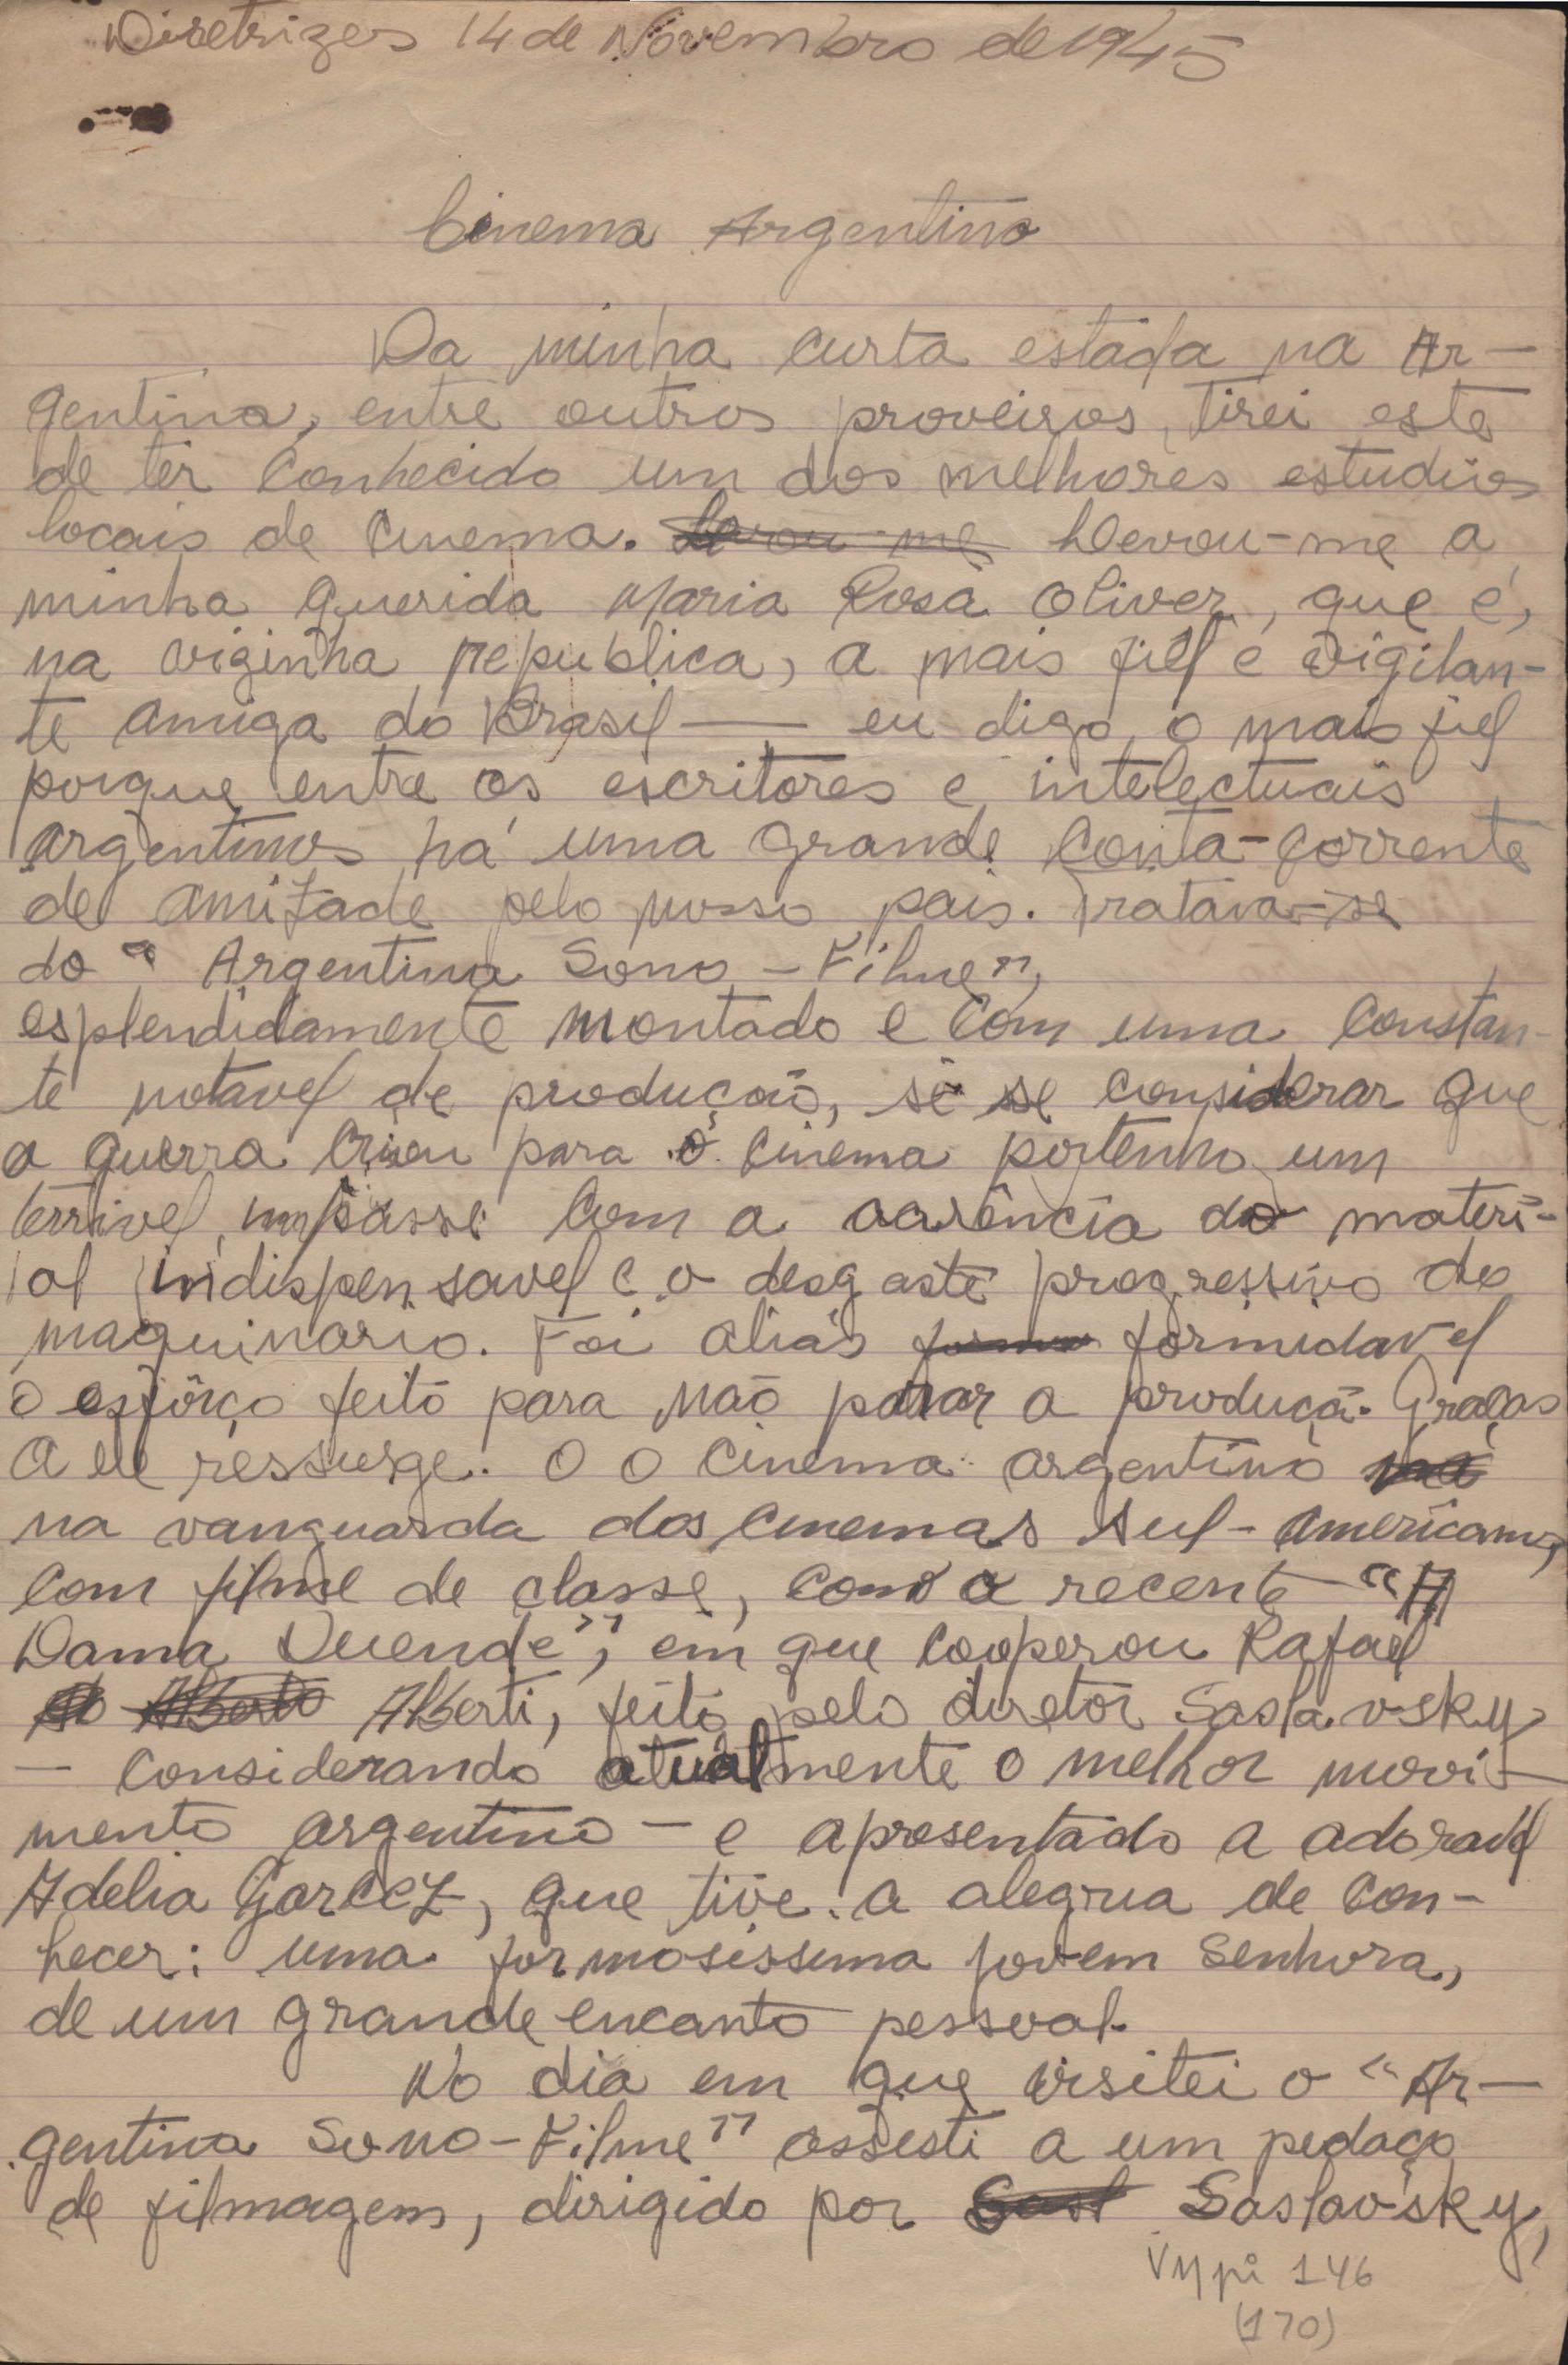 Diretrizes 14 de Novembro de 1945
Cinema Argentino
Da minha curta estáda na Ar-
gentina, entre outros proveitos, tirei este
de ter conhecido um dos melhores estudios
locais de cinema. Levou-me Levou-me a
minha querida Maria Rosa Oliver, que é,
na vizinha republica, a mais fiel e vigilan-
te amiga do Brasil — eu digo o mais fiel
porque entre os escritores e intelectuais
argentinos há uma grande conta-corrente
de amizade pelo nosso pais. Tratava-se
do " Argentina Sono-Filme",
esplendidamente montado e com uma constan-
te notavel de produção, se se considerar que
a guerra criou para o cinema portenho um
terrivel impasse com a carência do materi-
al indispensavel e o desgaste progressivo do
maquinario. Foi aliás formidavel
o esfôrço feito para não parar a produçã. Graças
a ele ressurge. O o cinema argentino na
na vanguarda dos cinemas sul-americanos,
com filme de classe, como a recente "A
Dama Duende", em que cooperou Rafael
Al Alberto Alberti, feito pelo diretor Saslavsky
— considerando atualmente o melhor movi-
mento argentino — e apresentado a adoravel
Adelia Garcez, que tive a alegria de con-
hecer: uma formosissima jovem senhora,
de um grande encanto pessoal.
No dia em que visitei o "Ar-
gentina Sono-Filme" assesti a um pedaço
de filmagem, dirigido por Sasl Saslavsky,
VMpi 146
(170)